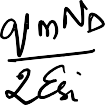 q m N_D
2 ε_si